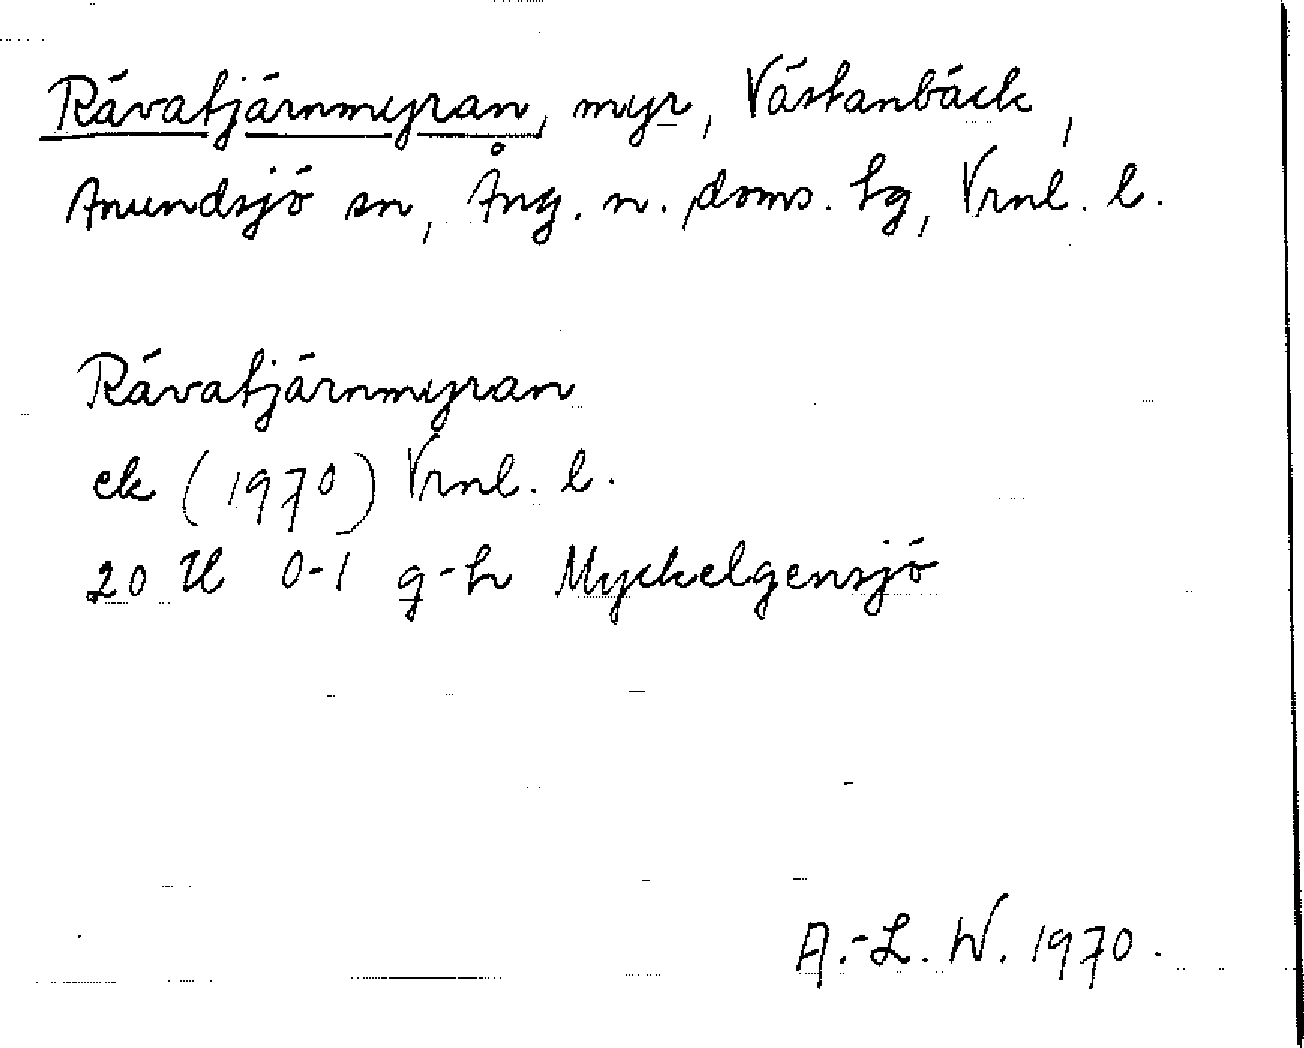 Rävatjärnmyran, myr, Västanbäck,
Anundsjö sn, Ång. n. doms. hg, Vrnl. l.
Rävatjärnmyran
ek (1970) Vrnl. l.
20 H 0-1 g-h Myckelgensjö
A.-L. W. 1970.